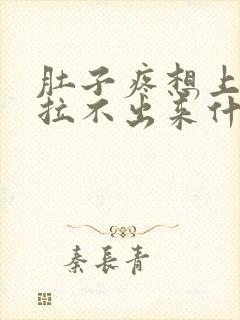 肚子疼想上
拉不出来什
秦長青